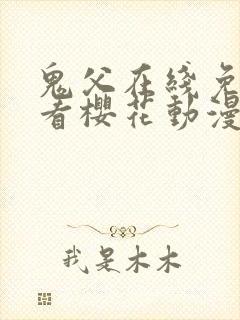 鬼父在线免
看樱花動漫
我是木木